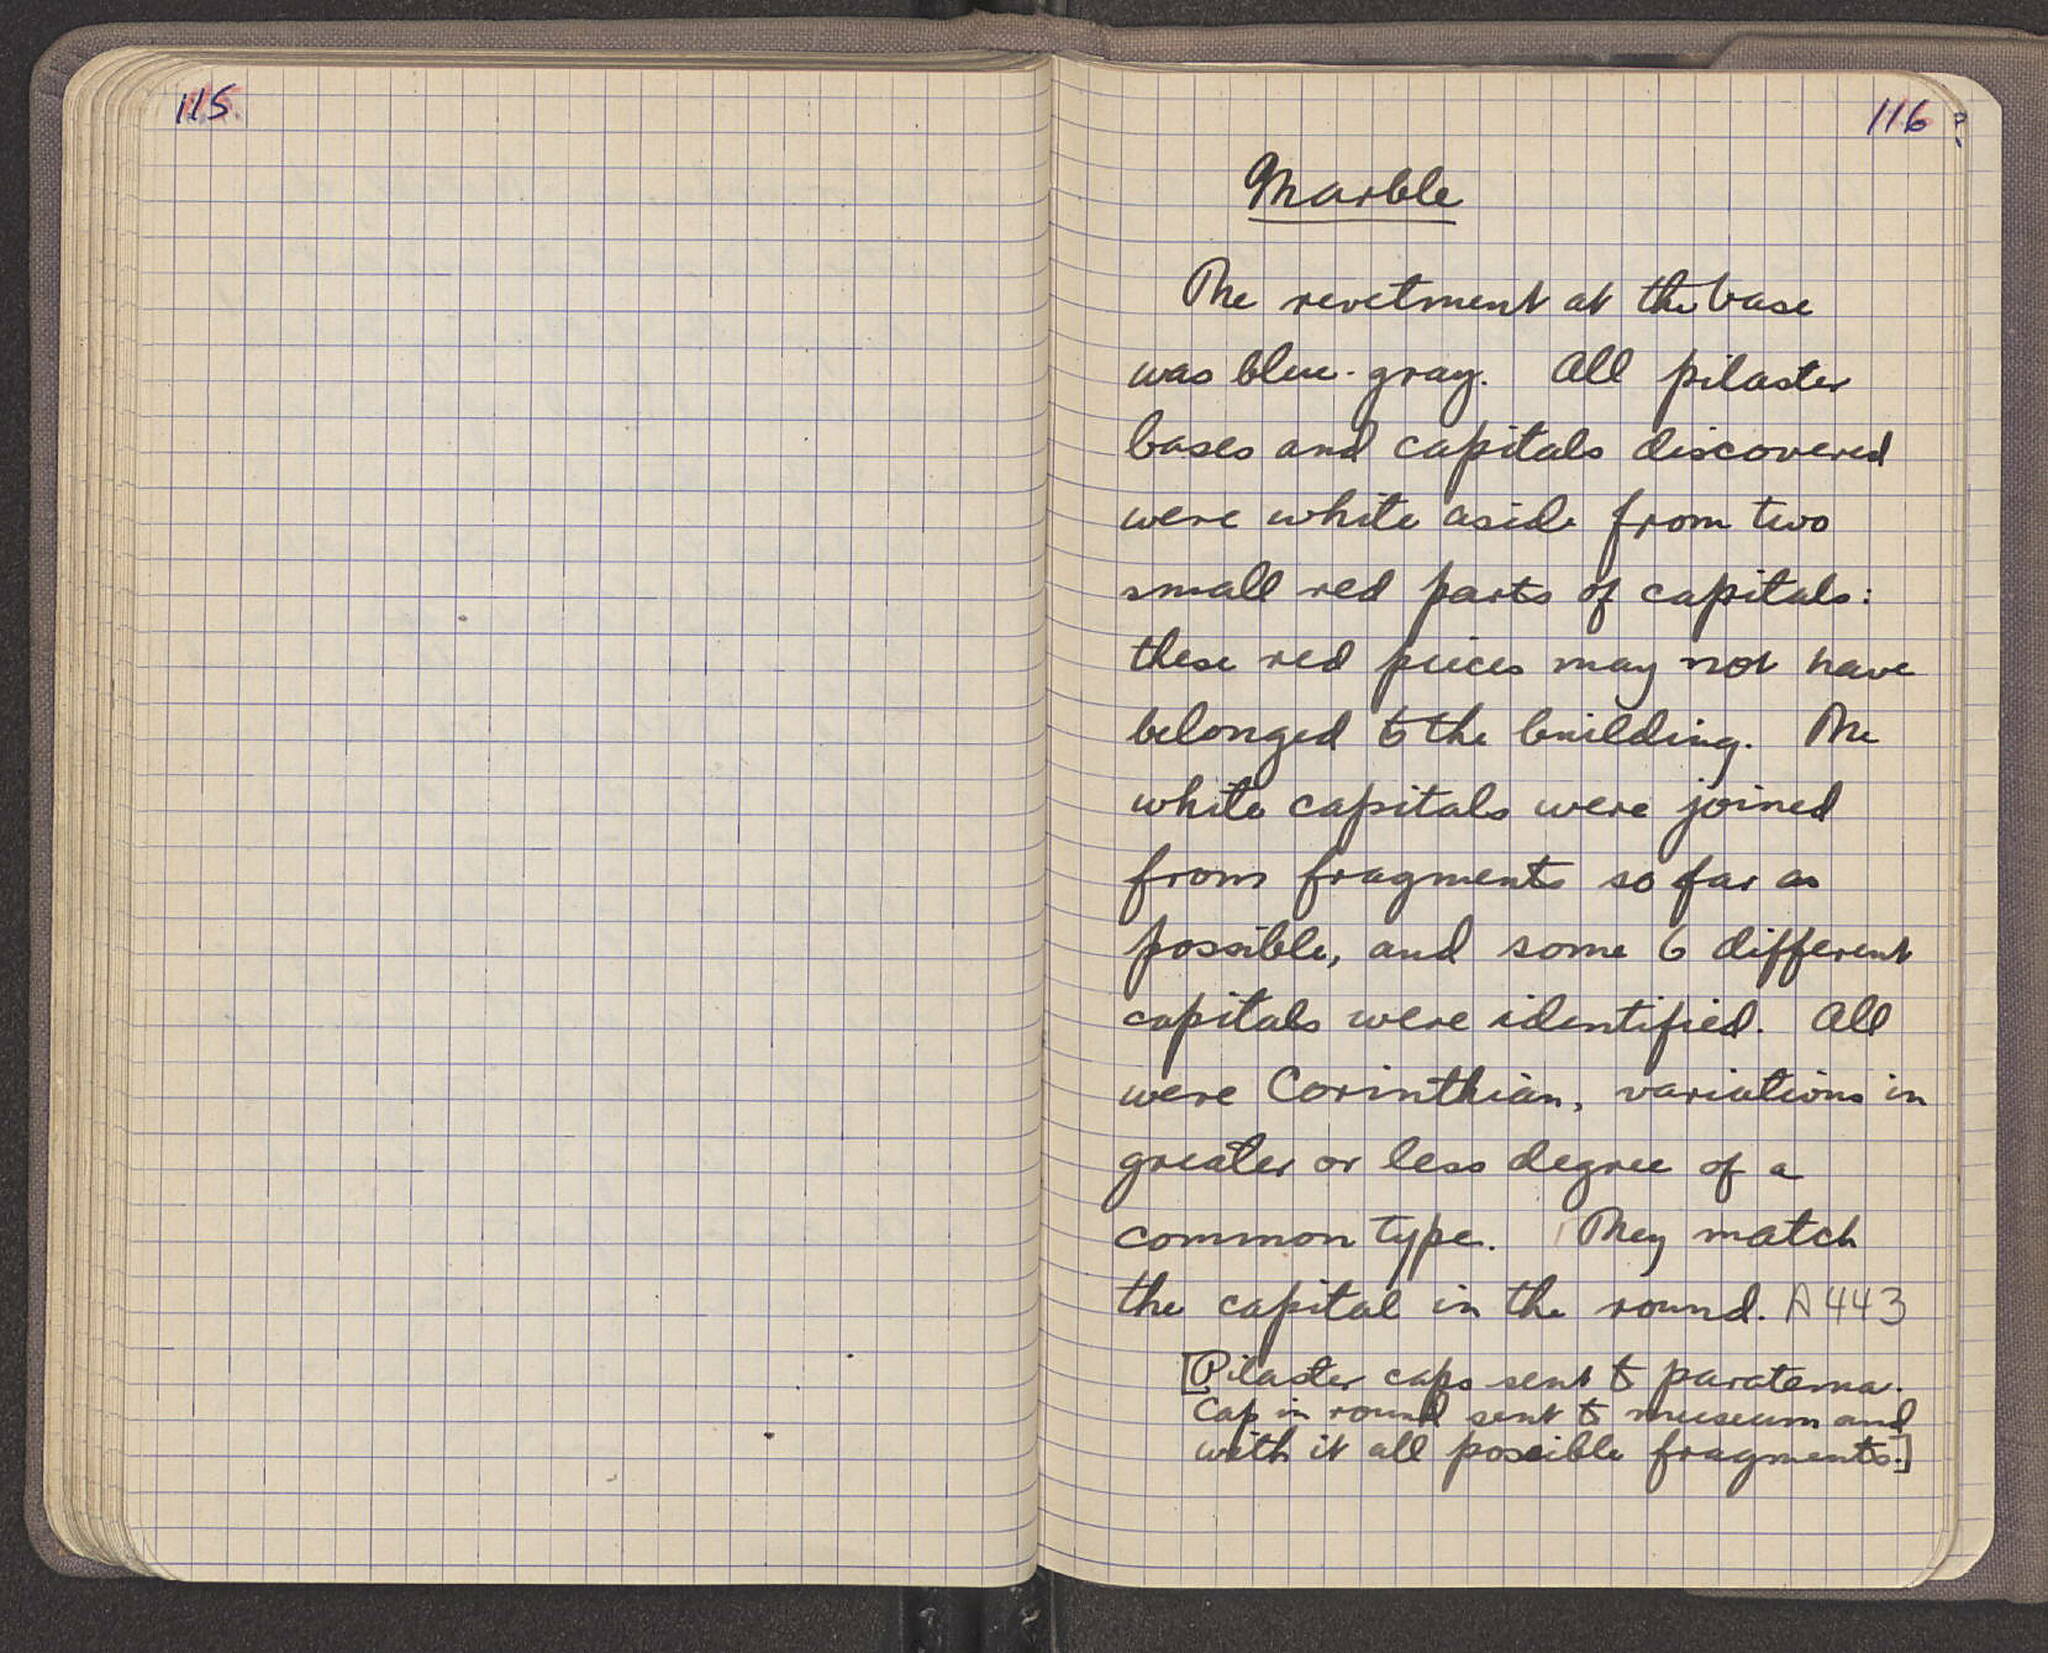 115
116
Marble
The revetment at the base
was blue-gray. All pilaster
bases and capitals discovered
were white aside from two
small red parts of capitals:
these red pieces may not have
belonged to the building. The
white capitals were joined
from fragments so far as
possible, and some 6 different
capitals were identified. All
were Corinthian, variations in
greater or less degree of a
common type. They match
the capital in the round. A 443
[Pilaster caps sent to paratema.
Cap in round sent to museum and
with it all possible fragments.]